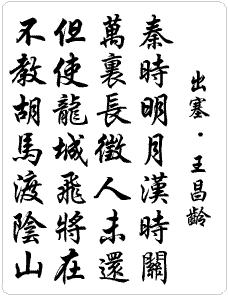 出塞·王昌齡
秦時明月漢時關
萬裏長徵人未還
但使龍城飛將在
不教胡馬渡陰山